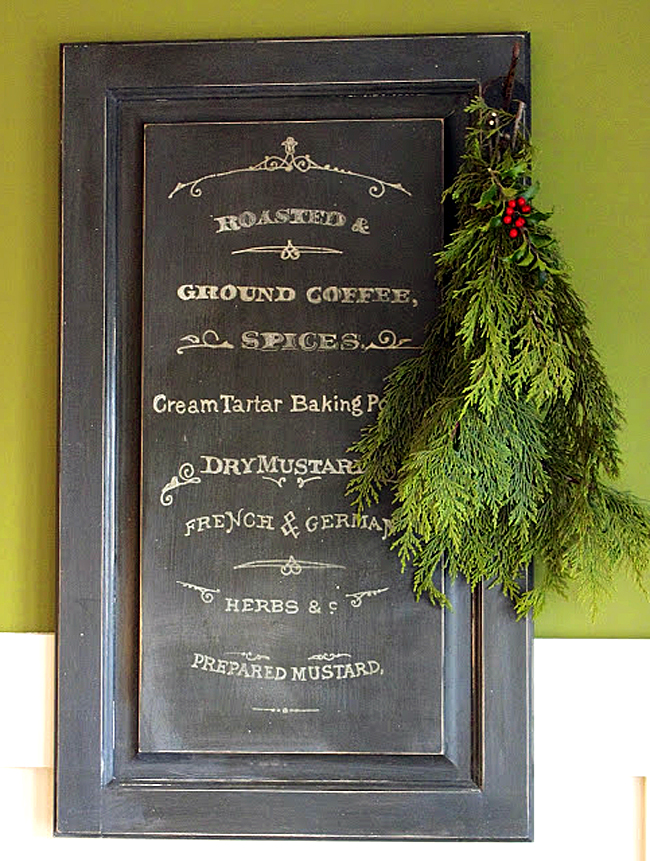 ROASTED &
GROUND COFFEE,
SPICES.
Cream Tartar Baking
DRY MUSTARD
FRENCH & GERMAN
HERBS & c
PREPARED MUSTARD,